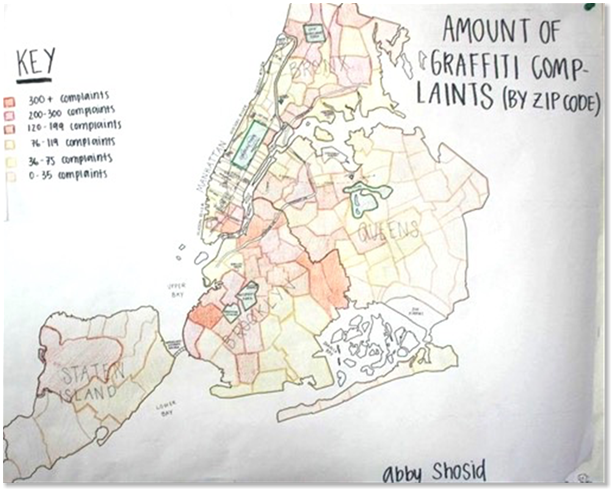 AMOUNT OF
GRAFFITI COMP-
LAINTS (BY ZIP CODE)
KEY
300+ complaints
200-300 complaints
120-199 complaints
76-119 complaints
36-75 complaints
0-35 complaints
BRONX
MANHATTAN
QUEENS
BROOKLYN
UPPER
BAY
STATEN
ISLAND
LOWER
BAY
abby Shosid